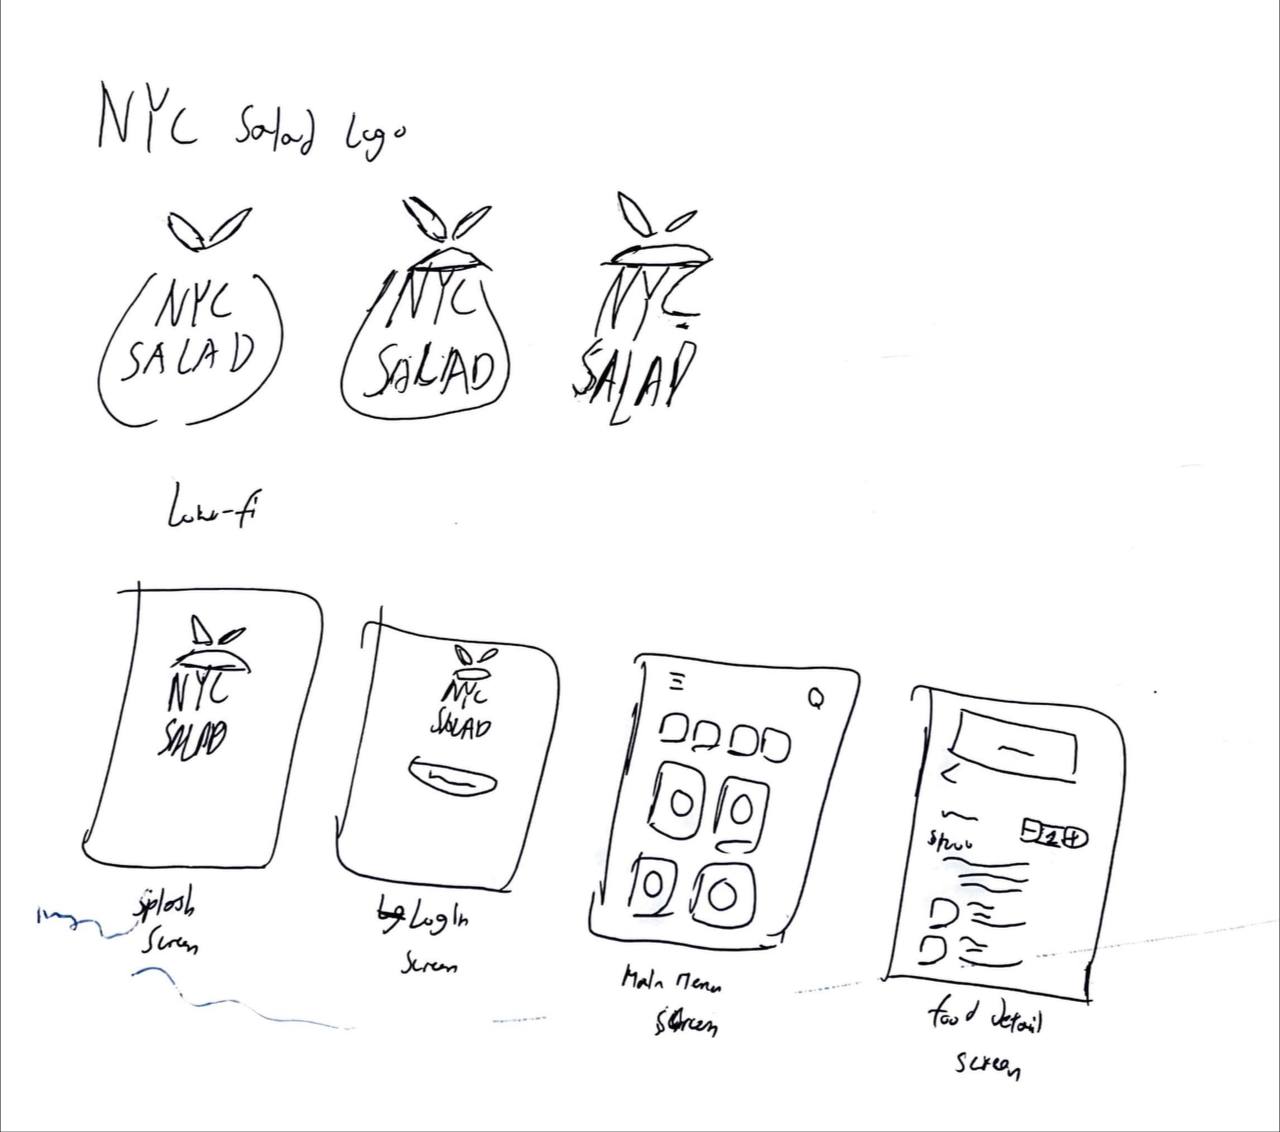 NYC Salad Logo
NYC
SALAD
NYC
SALAD
NYC
SALAD
Low-fi
NYC
SALAD
NYC
SALAD
Splash
Screen
Log In
Screen
Main Menu
Screen
- 1 +
food detail
screen